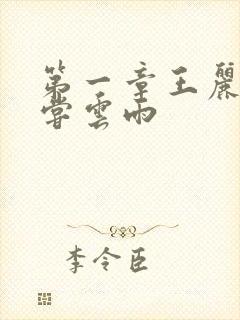 第一章王麗
嘗雲雨
李令臣